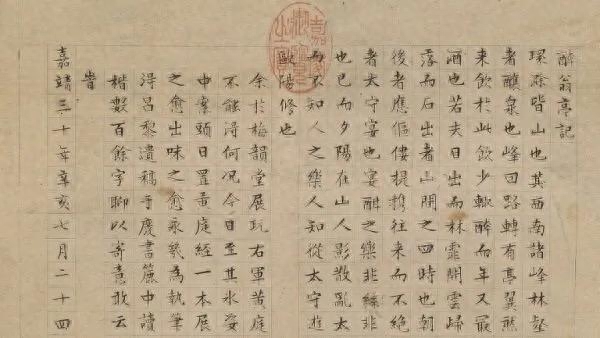 醉翁亭記
環滁皆山也其西南諸峰林壑
者釀泉也峰回路轉有亭翼然
来飲於此飲少輒醉而年又最
酒也若夫日出而林霏開雲歸
落而石出者山間之四時也朝
後者應傴僂提携往来而不絶
者太守宴也宴酣之樂非絲非
也已而夕陽在山人影散亂太
而不知人之樂人知從太守遊
歐陽修也
余於梅韻堂展玩右軍黄庭
不能得何况今日至其氷姿
中案頭日置黄庭經一本展
之愈出味之愈永幾為執筆
得昌黎遺稿于慶書簏中讀
楷數百餘字聊以寄意敢云
旹
嘉靖三十年辛亥七月二十四